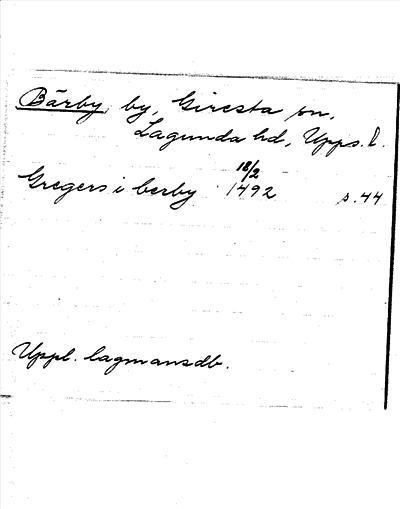 Bärby, by, Giresta sn,
Lagunda hd, Upps. l.
18/2
Gregers i berby 1492 s. 44
Uppl. lagmansdb.